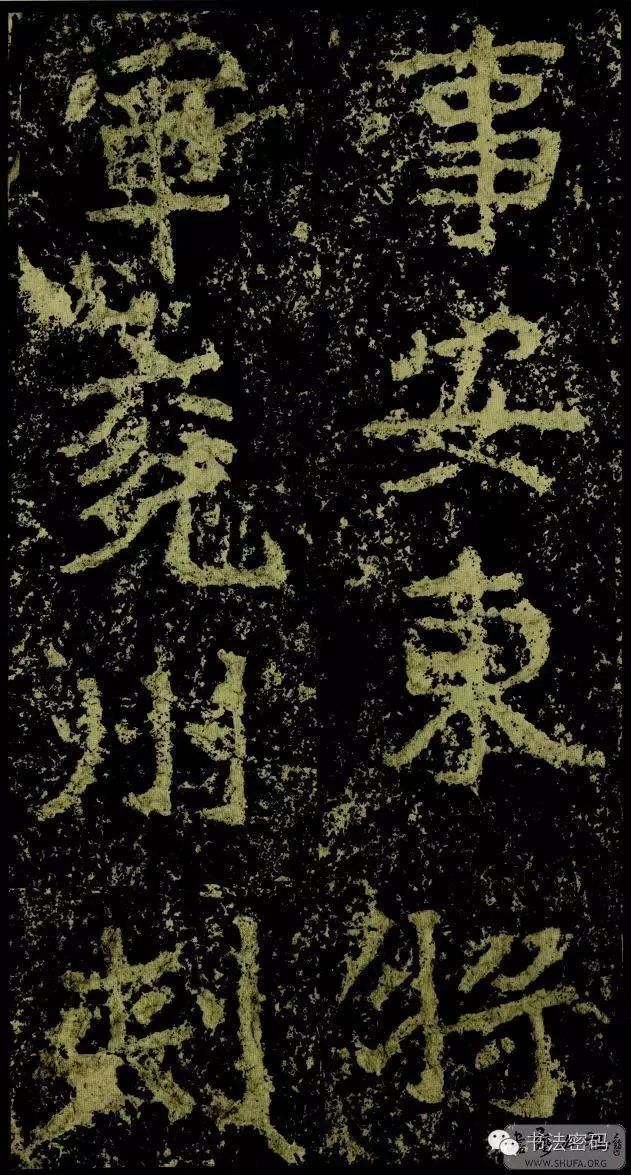 事安東將
軍兗州刺
书法密码
WWW.SHUFA.ORG